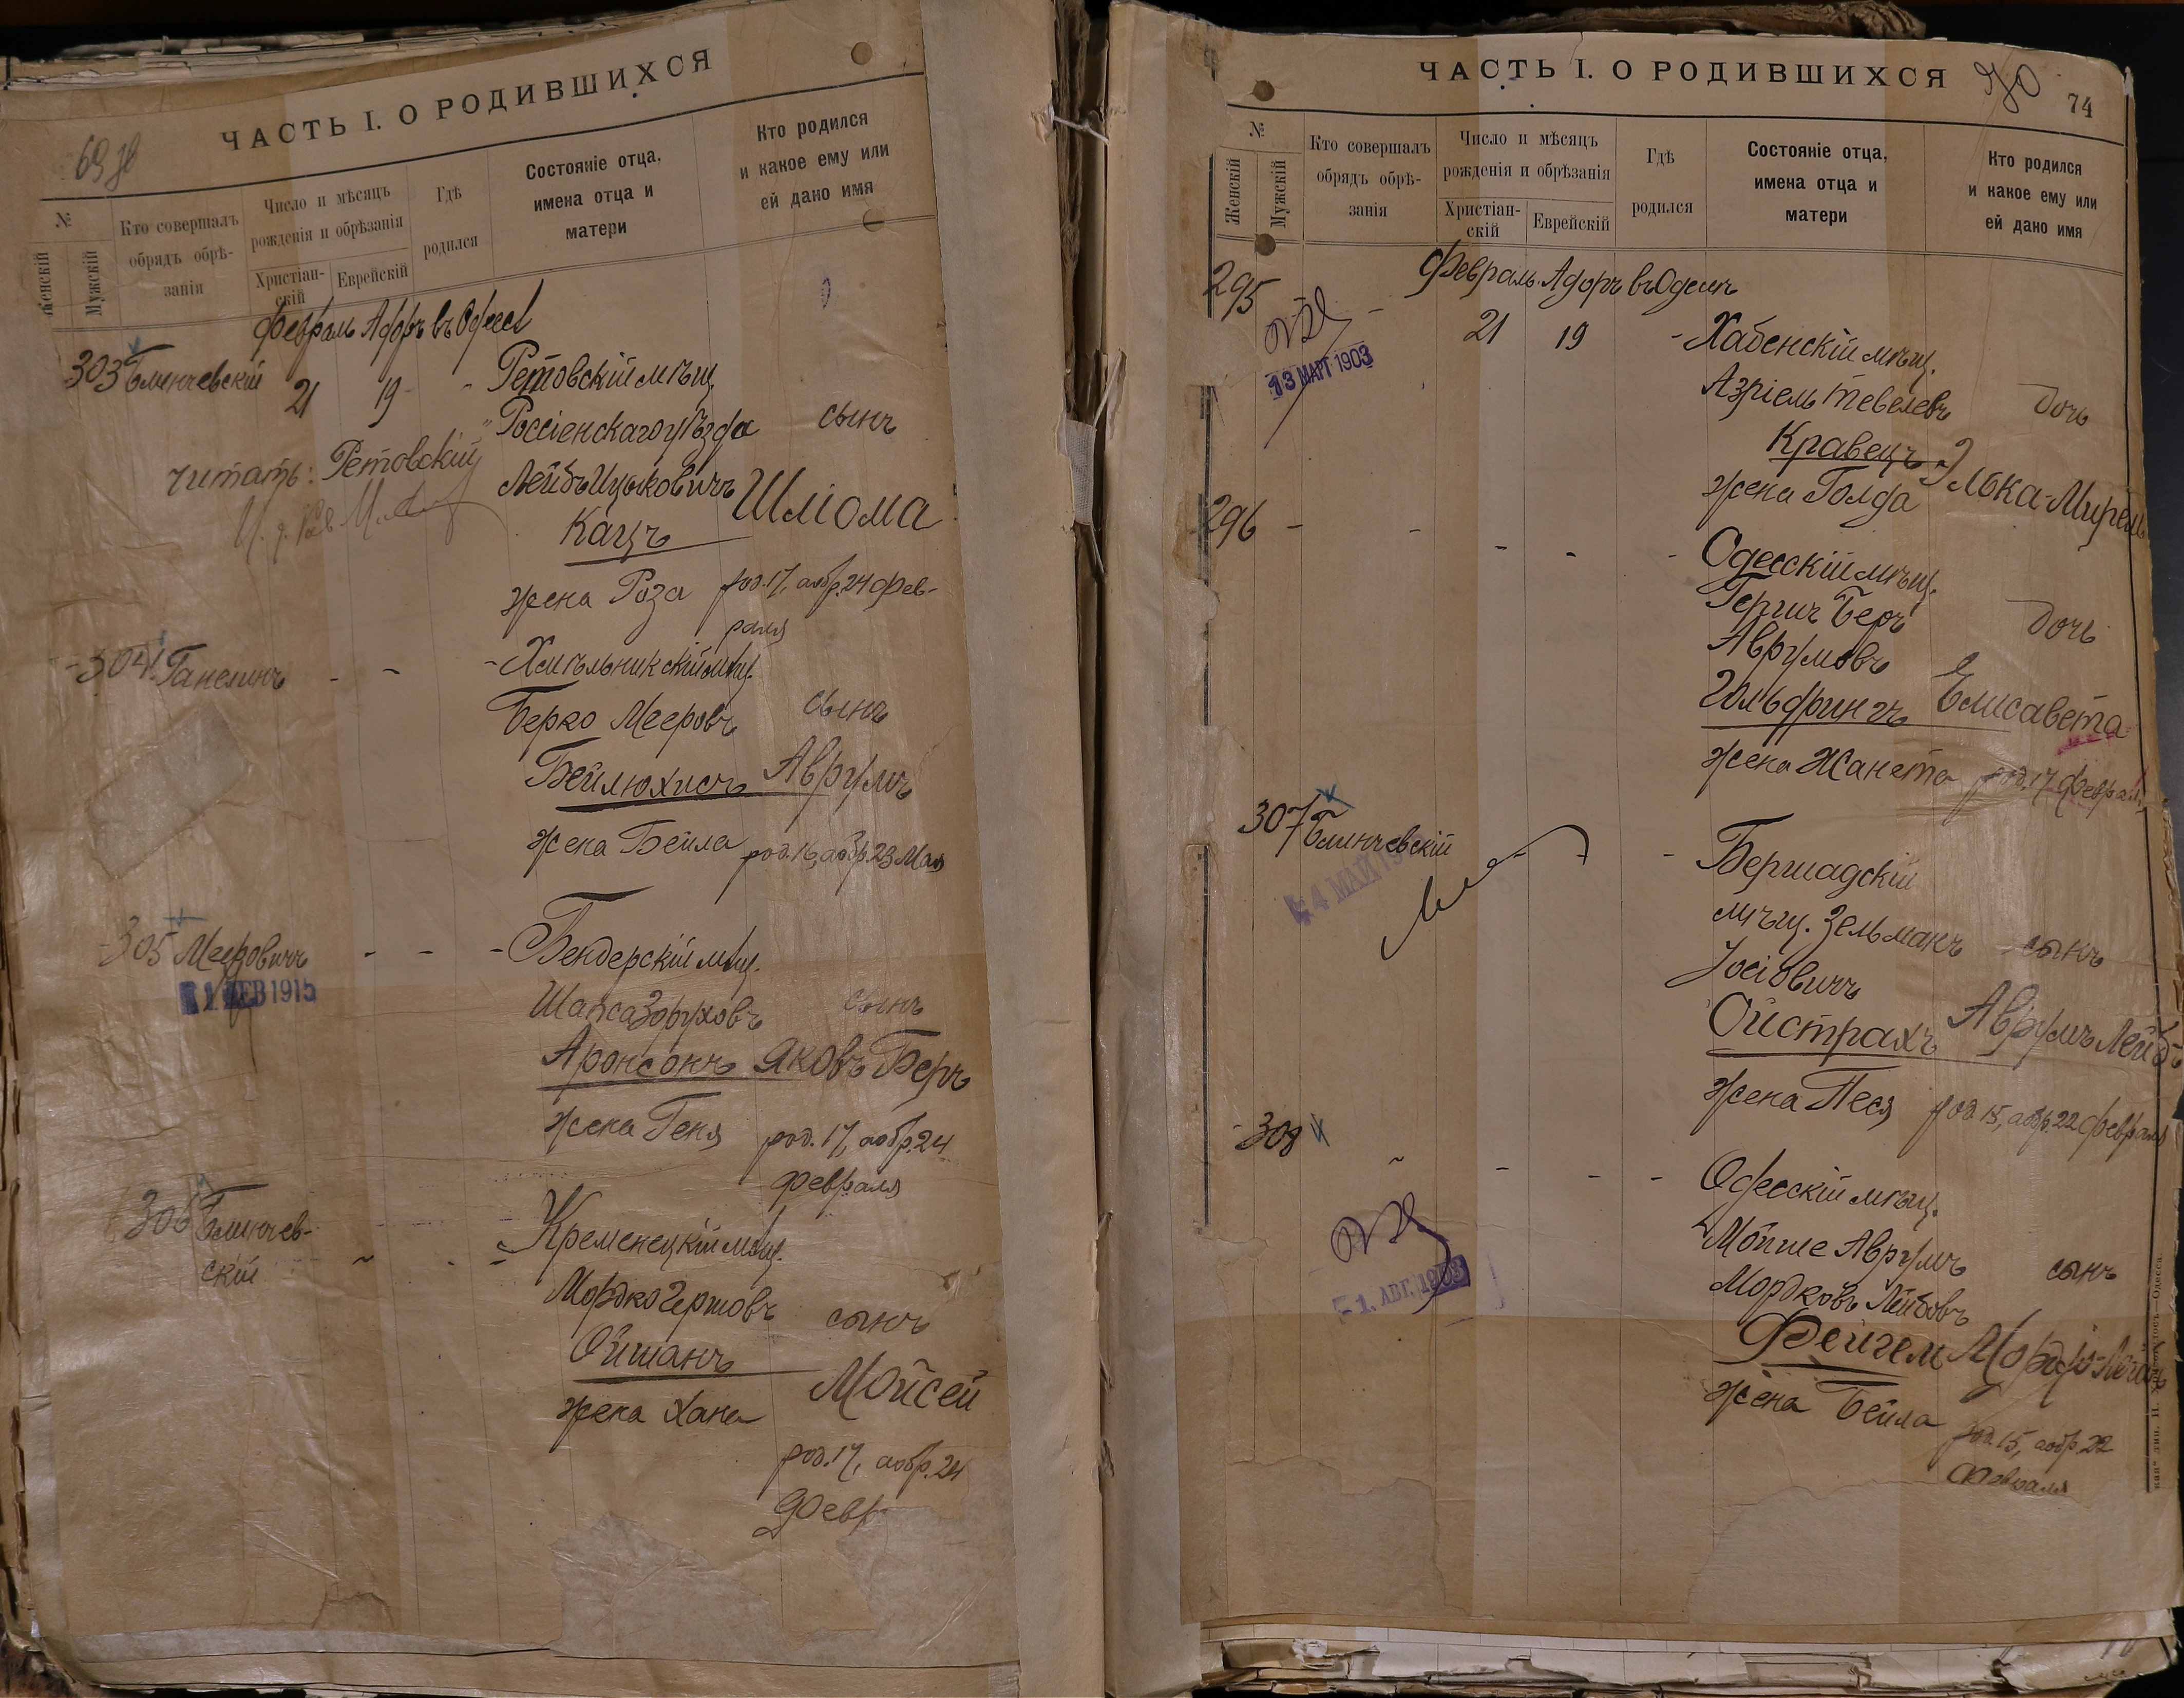 69 об
ЧАСТЬ I. О РОДИВШИХСЯ
№
Женскій
Мужскій
Кто совершалъ
обрядъ обрѣ-
занія
Число и мѣсяцъ
рожденія и обрѣзанія
Христіан-
скій
Еврейскій
Гдѣ
родился
Состояніе отца,
имена отца и
матери
Кто родился
и какое ему или
ей дано имя
Февраль Адоръ въ Одессѣ
303 Блинчевскій 21 19 - Ретовскій мѣщ.
Россіенскаго уѣзда сынъ
читать: Ретовскій
Лейбъ Ицьковичъ Шліома
И. д. Рав
Кацъ
жена Роза род. 17, а обр. 24 фев-
раля
304 Ганелинъ - - - Хмѣльникскій мѣщ.
Берко Мееровъ сынъ
Бейлюхисъ Аврумъ
жена Бейла род. 16, а обр. 23 Мая
305 Мееровичъ - - - Бендерскій мѣщ.
1 ФЕВ 1915
Шапса Зоруховъ сынъ
Аронсонъ Яковъ Беръ
жена Геня род. 17, а обр. 24
февраля
306 Блинчев-
скій
Кременецкій мѣщ.
Мордко Гершовъ сынъ
Ойшанъ
Мойсей
жена Хана
род. 17, а обр. 24
Февр
ЧАСТЬ I. О РОДИВШИХСЯ
70
74
№
Женскій
Мужскій
Кто совершалъ
обрядъ обрѣ-
занія
Число и мѣсяцъ
рожденія и обрѣзанія
Христіан-
скій
Еврейскій
Гдѣ
родился
Состояніе отца,
имена отца и
матери
Кто родился
и какое ему или
ей дано имя
Февраль Адоръ въ Одессѣ
295 - - 21 19 - Хабенскій мѣщ.
13 МАРТ 1903
Азріель Тевелевъ дочь
Кравецъ
Элька-Мирель
жена Голда
296 - - - - - Одесскій мѣщ.
Гершъ Беръ дочь
Аврумовъ
Гольдринъ Елисавета
жена Жанета род. 17 февраля
307 Блинчевскій - - - Бершадскій
4 МАЙ
мѣщ. Зельманъ сынъ
Іосіовичъ
Ойстрахъ Аврумъ Лейбъ
жена Песя род. 15, а обр. 22 февраля
308 - - - - Одесскій мѣщ.
1. АВГ. 1903
Мойше Аврумъ сынъ
Мордковъ Лейбовъ
Фейгел
жена Бейла род. 15, а обр. 22
Февраля